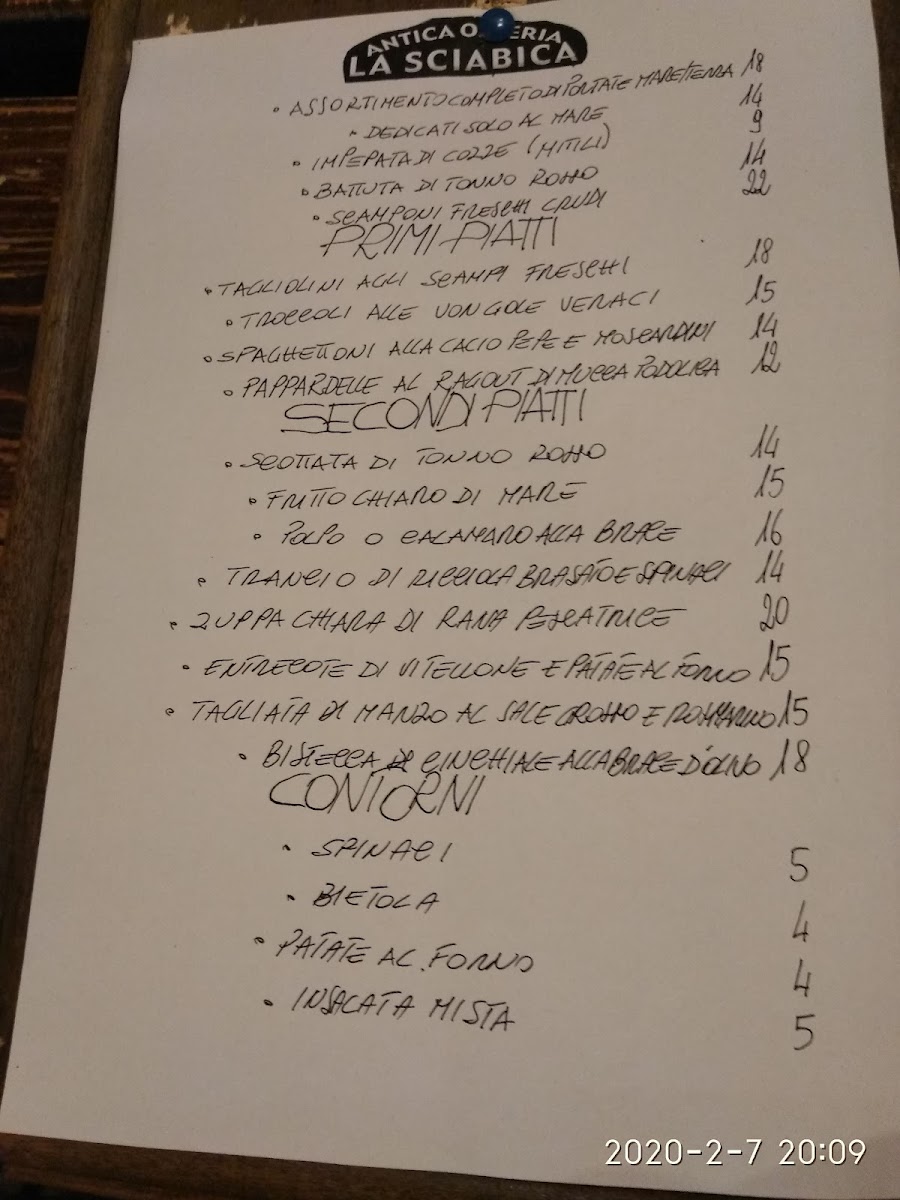 ANTICA O ERIA
LA SCIABICA
• ASSORTIMENTO COMPLETO DI PORTATE MARE/TERRA 18
• DEDICATI SOLO AL MARE 14
• IMPEPATA DI COZZE (MITILI) 9
• BATTUTA DI TONNO ROSSO 14
• SCAMPONI FRESCHI CRUDI 22
PRIMI PIATTI
• TAGLIOLINI AGLI SCAMPI FRESCHI 18
• TROCCOLI ALLE VONGOLE VERACI 15
• SPAGHETTONI ALLA CACIO PEPE E MOSCARDINI 14
• PAPPARDELLE AL RAGOUT DI MUCCA PODOLICA 12
SECONDI PIATTI
• SCOTTATA DI TONNO ROSSO 14
• FRITTO CHIARO DI MARE 15
• POLPO O CALAMARO ALLA BRACE 16
• TRANCIO DI RICCIOLA BRASATO E SPINACI 14
• ZUPPA CHIARA DI RANA PESCATRICE 20
• ENTRECOTE DI VITELLONE E PATATE AL FORNO 15
• TAGLIATA DI MANZO AL SALE GROSSO E ROSMARINO 15
• BISTECCA DI CINGHIALE ALLA BRACE D'ULIVO 18
CONTORNI
• SPINACI 5
• BIETOLA 4
• PATATE AL FORNO 4
• INSALATA MISTA 5
2020-2-7 20:09